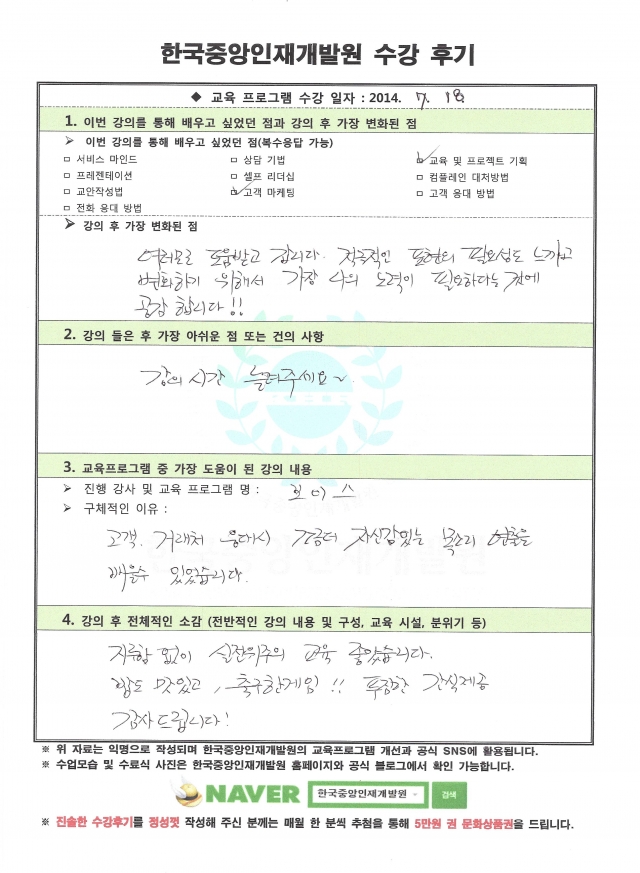 한국중앙인재개발원 수강 후기
◆ 교육 프로그램 수강 일자 : 2014. 7. 18.
1. 이번 강의를 통해 배우고 싶었던 점과 강의 후 가장 변화된 점
➢ 이번 강의를 통해 배우고 싶었던 점(복수응답 가능)
□ 서비스 마인드 □ 상담 기법 ☑ 교육 및 프로젝트 기획
□ 프레젠테이션 □ 셀프 리더십 □ 컴플레인 대처방법
□ 교안작성법 ☑ 고객 마케팅 □ 고객 응대 방법
□ 전화 응대 방법
➢ 강의 후 가장 변화된 점
여러모로 도움받고 갑니다. 적극적인 표현의 필요성도 느끼고
변화하기 위해서 가장 나의 노력이 필요하다는 것에
공감 합니다!!
2. 강의 들은 후 가장 아쉬운 점 또는 건의 사항
강의 시간 늘려주세요~
3. 교육프로그램 중 가장 도움이 된 강의 내용
➢ 진행 강사 및 교육 프로그램 명 : 보이스
➢ 구체적인 이유 :
고객. 거래처 응대시 조금더 자신감있는 목소리 연출을
배울수 있었습니다.
4. 강의 후 전체적인 소감 (전반적인 강의 내용 및 구성, 교육 시설, 분위기 등)
지루함 없이 실전위주의 교육 좋았습니다.
밥도 맛있고, 축구한게임!! 푸짐한 간식제공
감사드립니다!
※ 위 자료는 익명으로 작성되며 한국중앙인재개발원의 교육프로그램 개선과 공식 SNS에 활용됩니다.
※ 수업모습 및 수료식 사진은 한국중앙인재개발원 홈페이지와 공식 블로그에서 확인 가능합니다.
NAVER 한국중앙인재개발원 검색
※ 진솔한 수강후기를 정성껏 작성해 주신 분께는 매월 한 분씩 추첨을 통해 5만원 권 문화상품권을 드립니다.